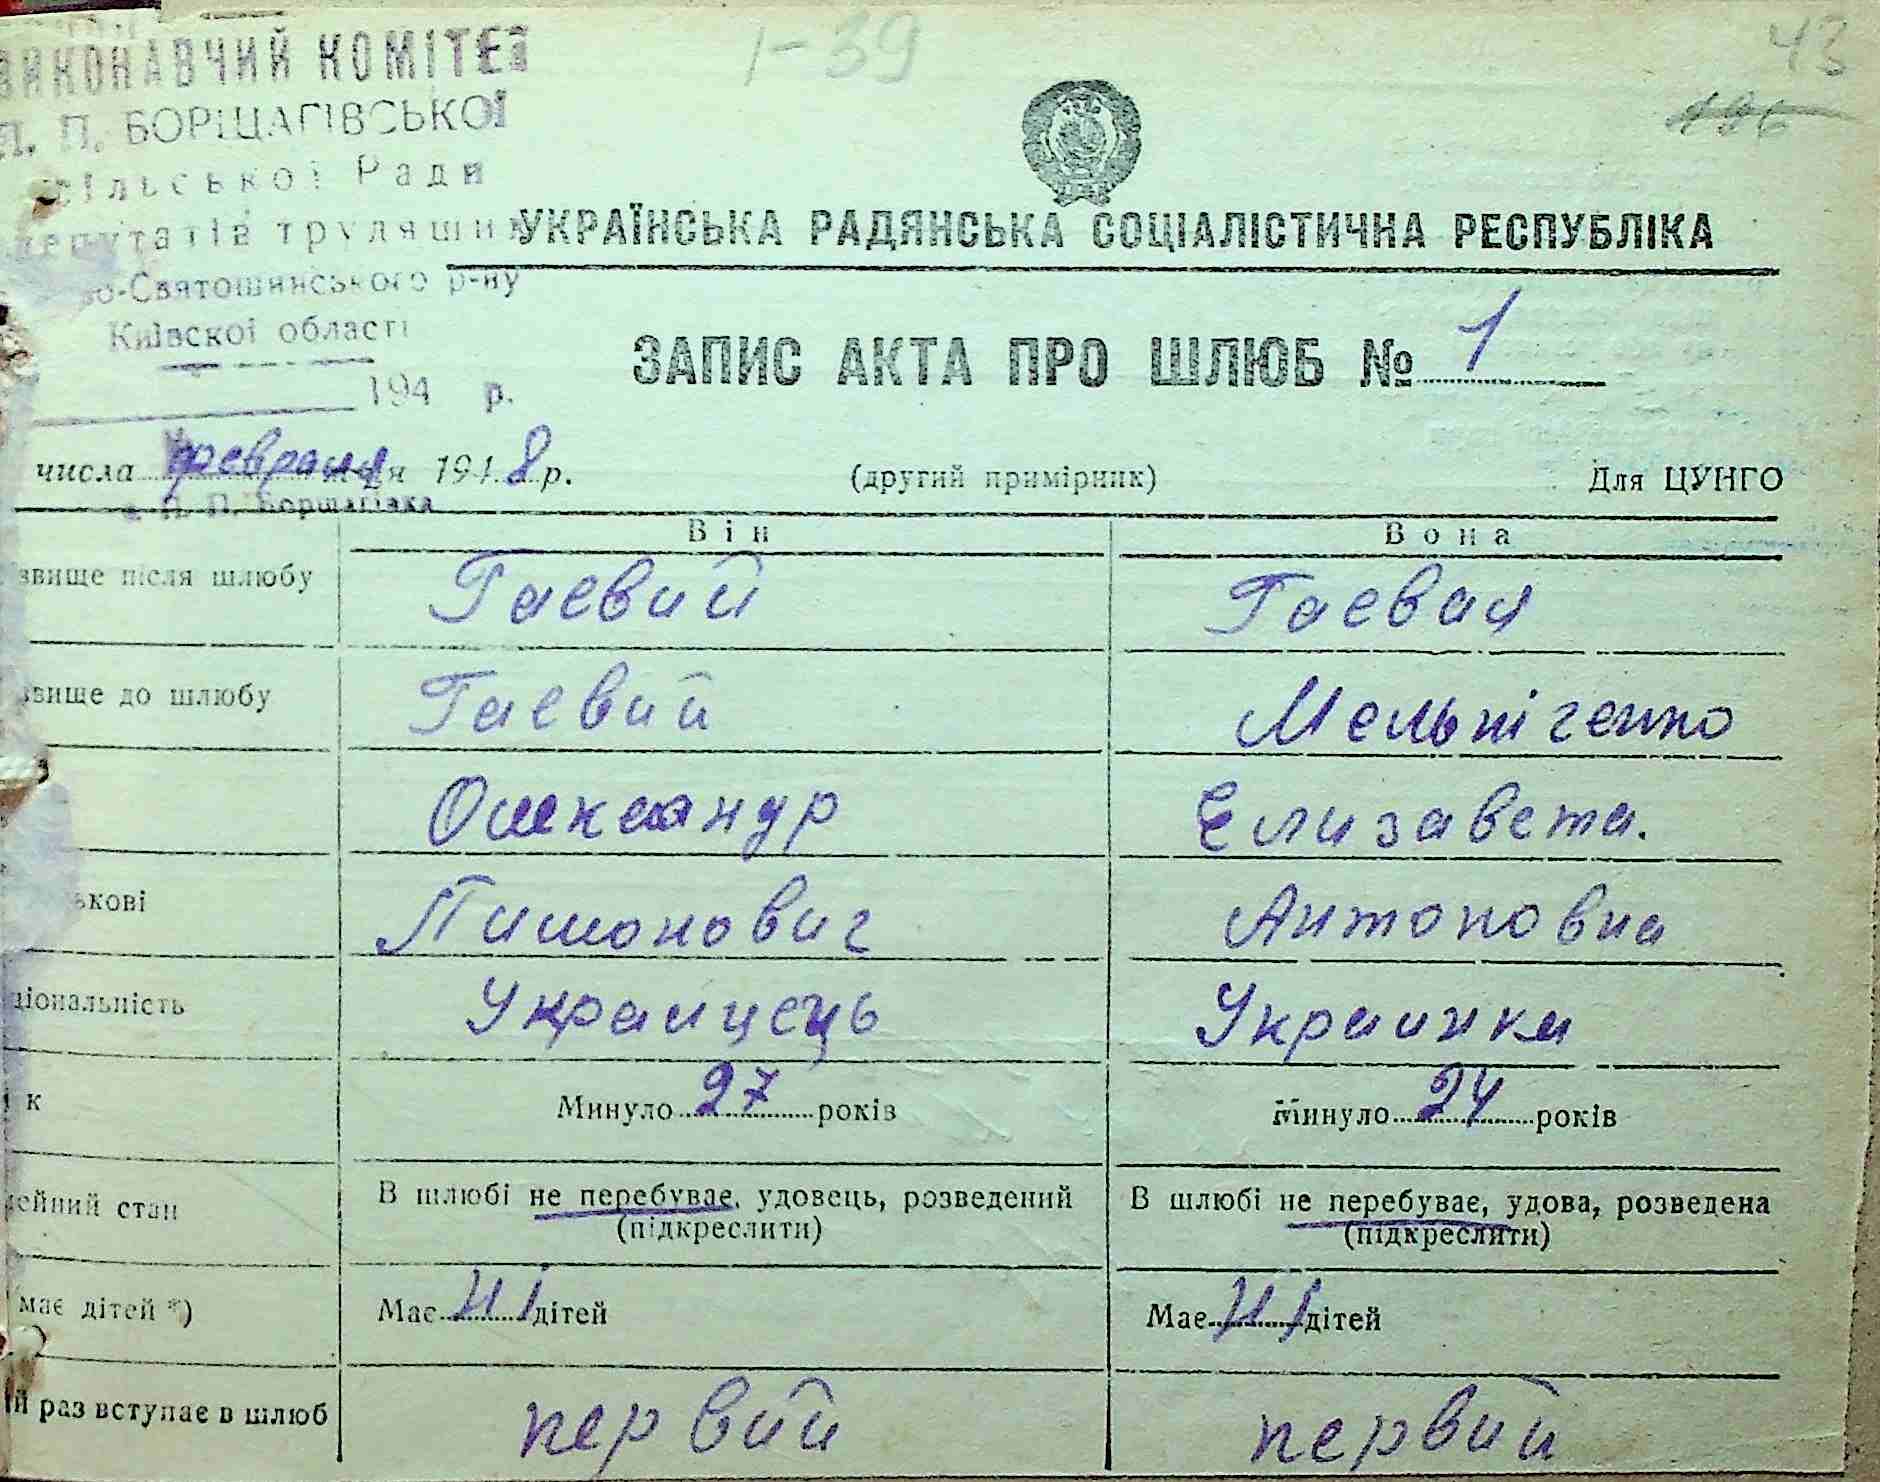 1-39
43
196
ВИКОНАВЧИЙ КОМІТЕТ
П. П. БОРЩАГІВСЬКОЇ
сільської Ради
депутатів трудящих
во-Святошинського р-ну
Київскої області
194 р.
УКРАЇНСЬКА РАДЯНСЬКА СОЦІАЛІСТИЧНА РЕСПУБЛІКА
ЗАПИС АКТА ПРО ШЛЮБ № 1
числа февраля 1948 р. (другий примірник) Для ЦУНГО
с. П. П. Борщагівка
Він Вона
звище після шлюбу Гаевий Гаевая
звище до шлюбу Гаевий Мельніченко
Олександр Елизавета.
ькові Пимонович Антоновна
ціональність Украинець Украинка
к Минуло 27 років Минуло 24 років
мейний стан В шлюбі не перебуває, удовець, розведений В шлюбі не перебуває, удова, розведена
(підкреслити) (підкреслити)
має дітей *) Має ні дітей Має ні дітей
й раз вступає в шлюб первий первий